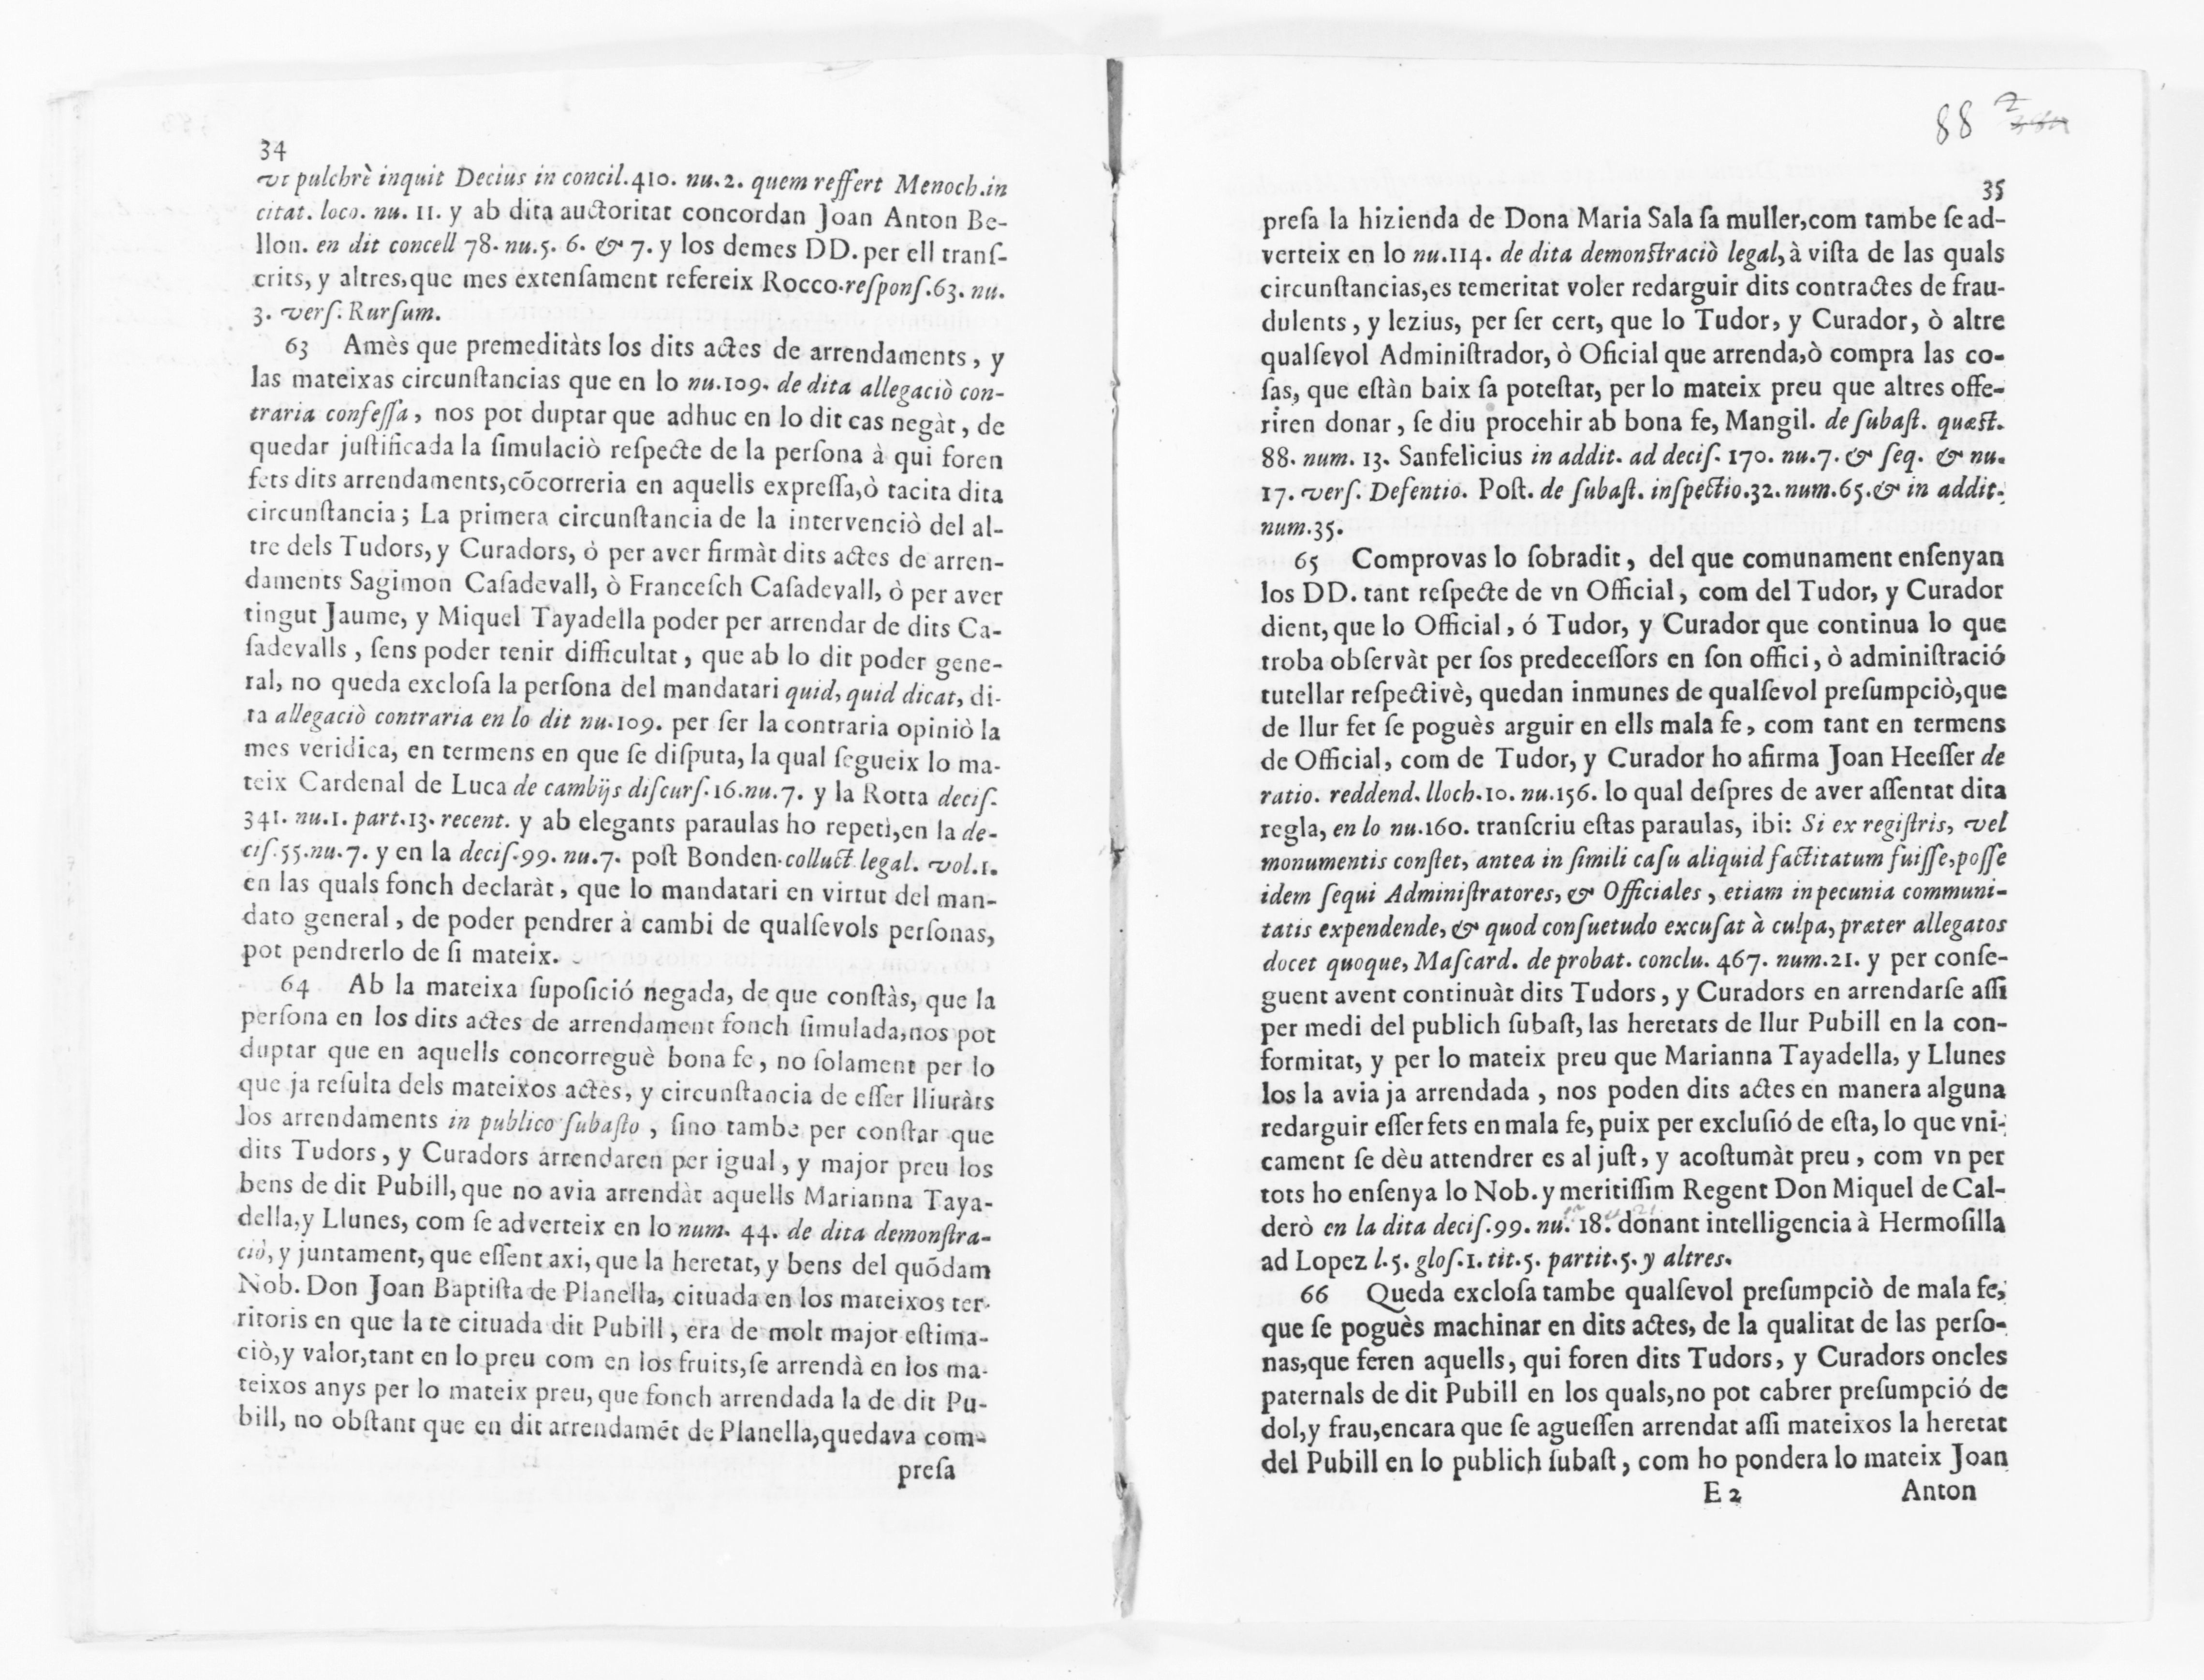 34
vt pulchrè inquit Decius in concil.410. nu.2. quem reffert Menoch.in
citat. loco. nu. 11. y ab dita auctoritat concordan Joan Anton Be-
llon. en dit concell 78. nu.5. 6. & 7. y los demes DD. per ell tranſ-
crits, y altres,que mes extenſament refereix Rocco.reſponſ.63. nu.
3. verſ. Rurſum.
63 Amès que premeditàts los dits actes de arrendaments, y
las mateixas circunſtancias que en lo nu.109. de dita allegaciò con-
traria confeſſa, nos pot duptar que adhuc en lo dit cas negàt, de
quedar juſtificada la ſimulaciò reſpecte de la perſona à qui foren
fets dits arrendaments,cõcorreria en aquells expreſſa,ò tacita dita
circunſtancia; La primera circunſtancia de la intervenciò del al-
tre dels Tudors, y Curadors, ò per aver firmàt dits actes de arren-
daments Sagimon Caſadevall, ò Franceſch Caſadevall, ò per aver
tingut Jaume, y Miquel Tayadella poder per arrendar de dits Ca-
ſadevalls, ſens poder tenir difficultat, que ab lo dit poder gene-
ral, no queda excloſa la perſona del mandatari quid, quid dicat, di-
ta allegaciò contraria en lo dit nu.109. per ſer la contraria opiniò la
mes veridica, en termens en que ſe diſputa, la qual ſegueix lo ma-
teix Cardenal de Luca de cambijs diſcurſ.16.nu.7. y la Rotta deciſ.
341. nu.1. part.13. recent. y ab elegants paraulas ho repetì,en la de-
ciſ.55.nu.7. y en la deciſ.99. nu.7. poſt Bonden.colluct legal. vol.1.
en las quals fonch declaràt, que lo mandatari en virtut del man-
dato general, de poder pendrer à cambi de qualſevols perſonas,
pot pendrerlo de ſi mateix.
64 Ab la mateixa ſupoſició negada, de que conſtàs, que la
perſona en los dits actes de arrendament fonch ſimulada,nos pot
duptar que en aquells concorreguè bona fe, no ſolament per lo
que ja reſulta dels mateixos actes, y circunſtancia de eſſer lliuràts
los arrendaments in publico ſubaſto, ſino tambe per conſtar que
dits Tudors, y Curadors arrendaren per igual, y major preu los
bens de dit Pubill, que no avia arrendàt aquells Marianna Taya-
della,y Llunes, com ſe adverteix en lo num. 44. de dita demonſtra-
ciò, y juntament, que eſſent axi, que la heretat, y bens del quõdam
Nob. Don Joan Baptiſta de Planella, cituada en los mateixos ter-
ritoris en que la te cituada dit Pubill, era de molt major eſtima-
ciò,y valor,tant en lo preu com en los fruits,ſe arrendà en los ma-
teixos anys per lo mateix preu, que fonch arrendada la de dit Pu-
bill, no obſtant que en dit arrendamét de Planella,quedava com-
preſa
88 2
35
preſa la hizienda de Dona Maria Sala ſa muller,com tambe ſe ad-
verteix en lo nu.114. de dita demonſtraciò legal, à viſta de las quals
circunſtancias,es temeritat voler redarguir dits contractes de frau-
dulents, y lezius, per ſer cert, que lo Tudor, y Curador, ò altre
qualſevol Adminiſtrador, ò Oficial que arrenda,ò compra las co-
ſas, que eſtàn baix ſa poteſtat, per lo mateix preu que altres offe-
riren donar, ſe diu procehir ab bona fe, Mangil. de ſubaſt. quæſt.
88. num. 13. Sanfelicius in addit. ad deciſ. 170. nu.7. & ſeq. & nu.
17. verſ. Defentio. Poſt. de ſubaſt. inſpectio.32.num.65.& in addit.
num.35.
65 Comprovas lo ſobradit, del que comunament enſenyan
los DD. tant reſpecte de vn Official, com del Tudor, y Curador
dient, que lo Official, ó Tudor, y Curador que continua lo que
troba obſervàt per ſos predeceſſors en ſon offici, ò adminiſtració
tutellar reſpectivè, quedan inmunes de qualſevol preſumpciò,que
de llur fet ſe poguès arguir en ells mala fe, com tant en termens
de Official, com de Tudor, y Curador ho afirma Joan Heeſſer de
ratio. reddend. lloch.10. nu.156. lo qual deſpres de aver aſſentat dita
regla, en lo nu.160. tranſcriu eſtas paraulas, ibi: Si ex regiſtris, vel
monumentis conſtet, antea in ſimili caſu aliquid factitatum fuiſſe,poſſe
idem ſequi Adminiſtratores, & Officiales, etiam inpecunia communi-
tatis expendende, & quod conſuetudo excuſat à culpa, præter allegatos
docet quoque, Maſcard. de probat. conclu. 467. num.21. y per conſe-
guent avent continuàt dits Tudors, y Curadors en arrendarſe aſſi
per medi del publich ſubaſt, las heretats de llur Pubill en la con-
formitat, y per lo mateix preu que Marianna Tayadella, y Llunes
los la avia ja arrendada, nos poden dits actes en manera alguna
redarguir eſſer fets en mala fe, puix per excluſió de eſta, lo que vni-
cament ſe dèu attendrer es al juſt, y acoſtumàt preu, com vn per
tots ho enſenya lo Nob. y meritiſſim Regent Don Miquel de Cal-
derò en la dita deciſ.99. nu. 18. donant intelligencia à Hermoſilla
ad Lopez l.5. gloſ.1. tit.5. partit.5. y altres.
66 Queda excloſa tambe qualſevol preſumpciò de mala fe,
que ſe poguès machinar en dits actes, de la qualitat de las perſo-
nas,que feren aquells, qui foren dits Tudors, y Curadors oncles
paternals de dit Pubill en los quals,no pot cabrer preſumpció de
dol,y frau,encara que ſe agueſſen arrendat aſſi mateixos la heretat
del Pubill en lo publich ſubaſt, com ho pondera lo mateix Joan
E 2 Anton